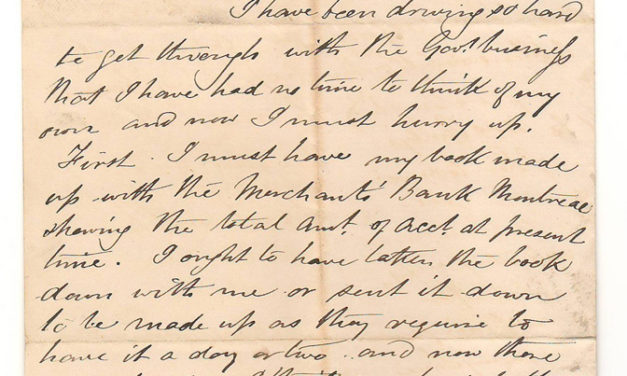 I have been driving so hard
to get through with the Govt business
that I have had no time to think of my
own and now I must hurry up.
First. I must have my book made
up with the Merchants' Bank Montreal
showing the total amt. of acct. at present
time. I ought to have taken the book
down with me or sent it down
to be made up as they require to
have it a day or two. and now there